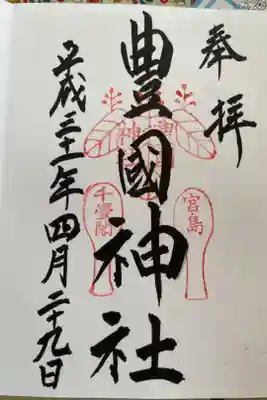 奉拝
豊國神社
平成三十一年四月二十九日
宮島
千畳閣